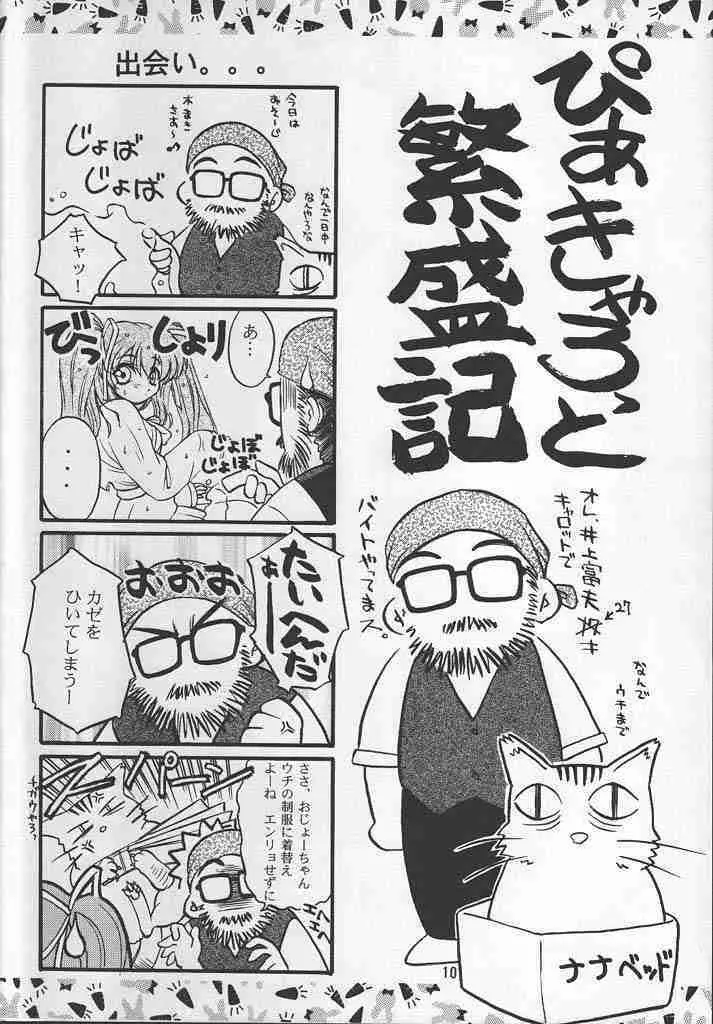 ぴあきゃろっと
繁盛記
出会い。。。
今日は
木まき
さあ〜♪
じょば
じょば
なんで一日中
なんやろな
キャッ!
あ…
じょり
びっ
じょぼ
じょぼ
・・・
たいへんだ
あーー
おおおお
カゼを
ひいてしまうー
ささ、おじょーちゃん
ウチの制服に着替え
よーね エンリョせずに
エへ
エへ
スパーン
チガウやろ?
オレ、井上富夫
27
キャロットで
バイトやってまス。
なんで
ウチまで
ナナベッド
10